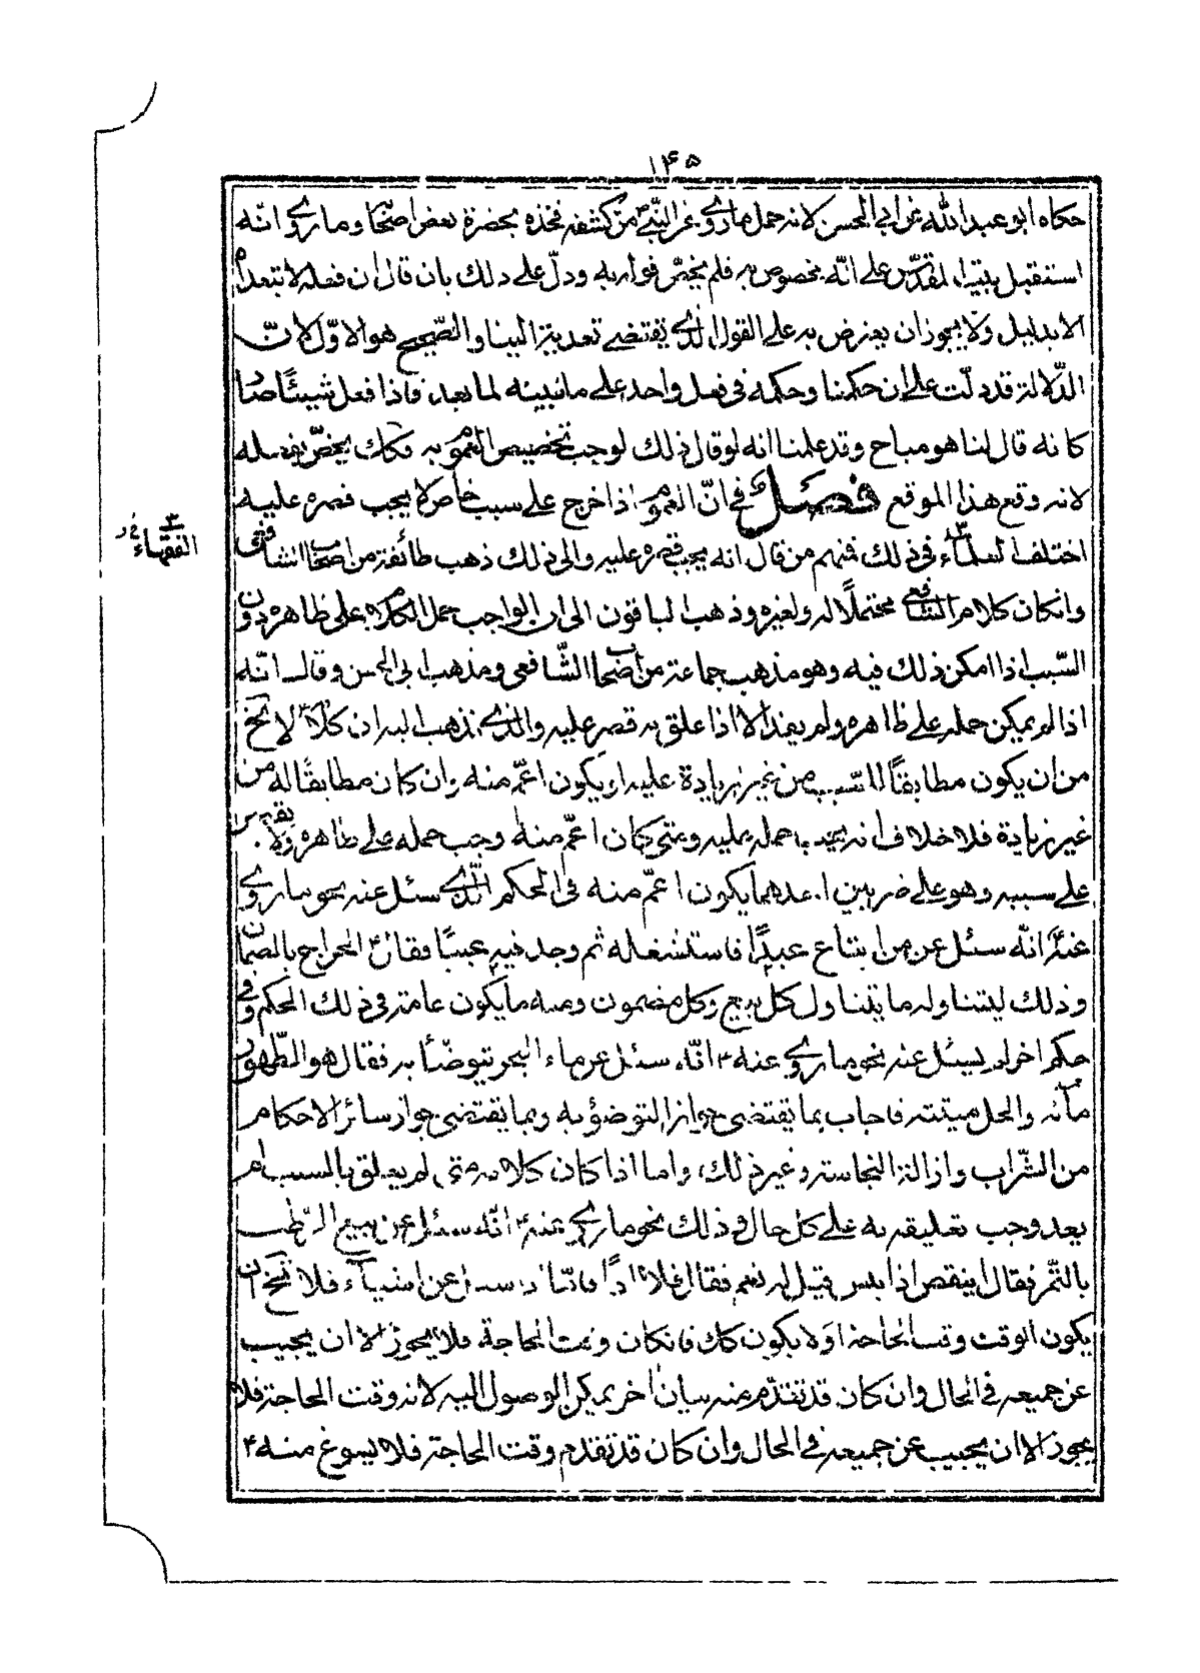 ١۴۵
حكاه ابو عبد الله عن ابي الحسن لانه حمل ما روى عن النبي من كشفه فخذه بحضرة بعض اصحابه وما روى انه
استقبل بيت المقدس على انه مخصوص به فلم يخص قوله به ودلّ على ذلك بان قال ان فعله لا يتعداه
الا بدليل ولا يجوز ان يعترض به على القول الذى يقتضى تعديته الينا والصّحيح هو الاوّل لانّ
الدّلالة قد دلت على ان حكمنا وحكمه فى فعل واحد على ما نبينه لما بعد فاذا فعل شيئًا صار
كانه قال لنا هو مباح وقد علمنا انه لو قال ذلك لوجب تخصيص العموم به فكك يخصّ بفعله
لانه وقع هذا الموقع فصل فى انّ العموم اذا خرج على سبب خاص لا يجب قصره عليه
اختلف العلماء فى ذلك فمنهم من قال انه يجب قصره عليه والى ذلك ذهب طائفة من اصحاب الشافعى
الفقهاء
وانكان كلام الشافعى محتملًا له ولغيره وذهب الباقون الى ان الواجب حمل الكلام على ظاهره دون
السّبب اذا امكن ذلك فيه وهو مذهب جماعة من اصحاب الشّافعى ومذهب ابى الحسن وقال انّه
اذا لم يمكن حمله على ظاهره ولم يفد الا اذا علق به قصر عليه والذى نذهب اليه ان كلامه لا يخ
من ان يكون مطابقًا للسّبب من غير زيادة عليه او يكون اعمّ منه وان كان مطابقًا له من
غير زيادة فلا خلاف انه يجب حمله عليه ومتى كان اعمّ منه وجب حمله على ظاهره ولا يقصر
على سببه وهو على ضربين احدهما يكون اعمّ منه فى الحكم الّذى سئل عنه نحو ما روى
عنه انّه سئل عن من ابتاع عبدًا فاستشغله ثم وجد فيه عيبًا فقال الخراج بالضمان
وذلك ليتناوله ما يتناول كل بيع وكل مضمون ومنه ما يكون عامة فى ذلك الحكم وفى
حكم اخر لم يسئل عنه نحو ما روى عنه انّه سئل عن ماء البحر يتوضّأ به فقال هو الطّهور
مائه والحل ميتته فاجاب بما يقتضى جواز التوضؤ به وبما يقتضى جواز سائر الاحكام
من الشّراب وازالة النجاسة وغير ذلك، واما اذا كان كلامه متى لم يعلق بالسبب لم
يفد وجب تعليقه به على كل حال وذلك نحو ما روى عنه انّه سئل عن بيع الرّطب
بالتّمر فقال اينقص اذا يبس قيل له نعم فقال فلا اذًا فامّا اذا سئل عن اشياء فلا يخ ان
يكون الوقت وقت الحاجة اولا يكون كك فانكان وقت الحاجة فلا يجوز الا ان يجيب
عن جميعه فى الحال وان كان قد تقدّم منه بيان اخر يمكن الوصول اليه لانه وقت الحاجة فلا
يجوز الا ان يجيب عن جميعه فى الحال وان كان قد تقدم وقت الحاجة فلا يسوغ منه